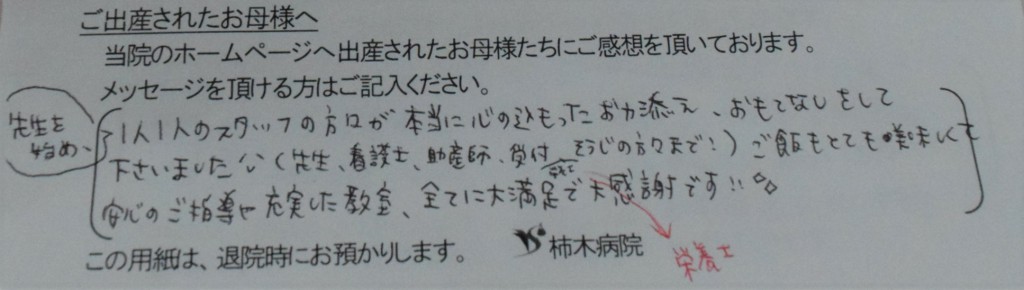 ご出産されたお母様へ
当院のホームページへ出産されたお母様たちにご感想を頂いております。
メッセージを頂ける方はご記入ください。
先生を
始め、
1人1人のスタッフの方々が本当に心の込もったお力添え、おもてなしをして
下さいました♡(先生、看護士、助産師、受付、そうじの方々まで!)ご飯もとても美味しく
栄養士
安心のご指導や充実した教室、全てに大満足で大感謝です!!
この用紙は、退院時にお預かりします。
柿木病院
栄養士